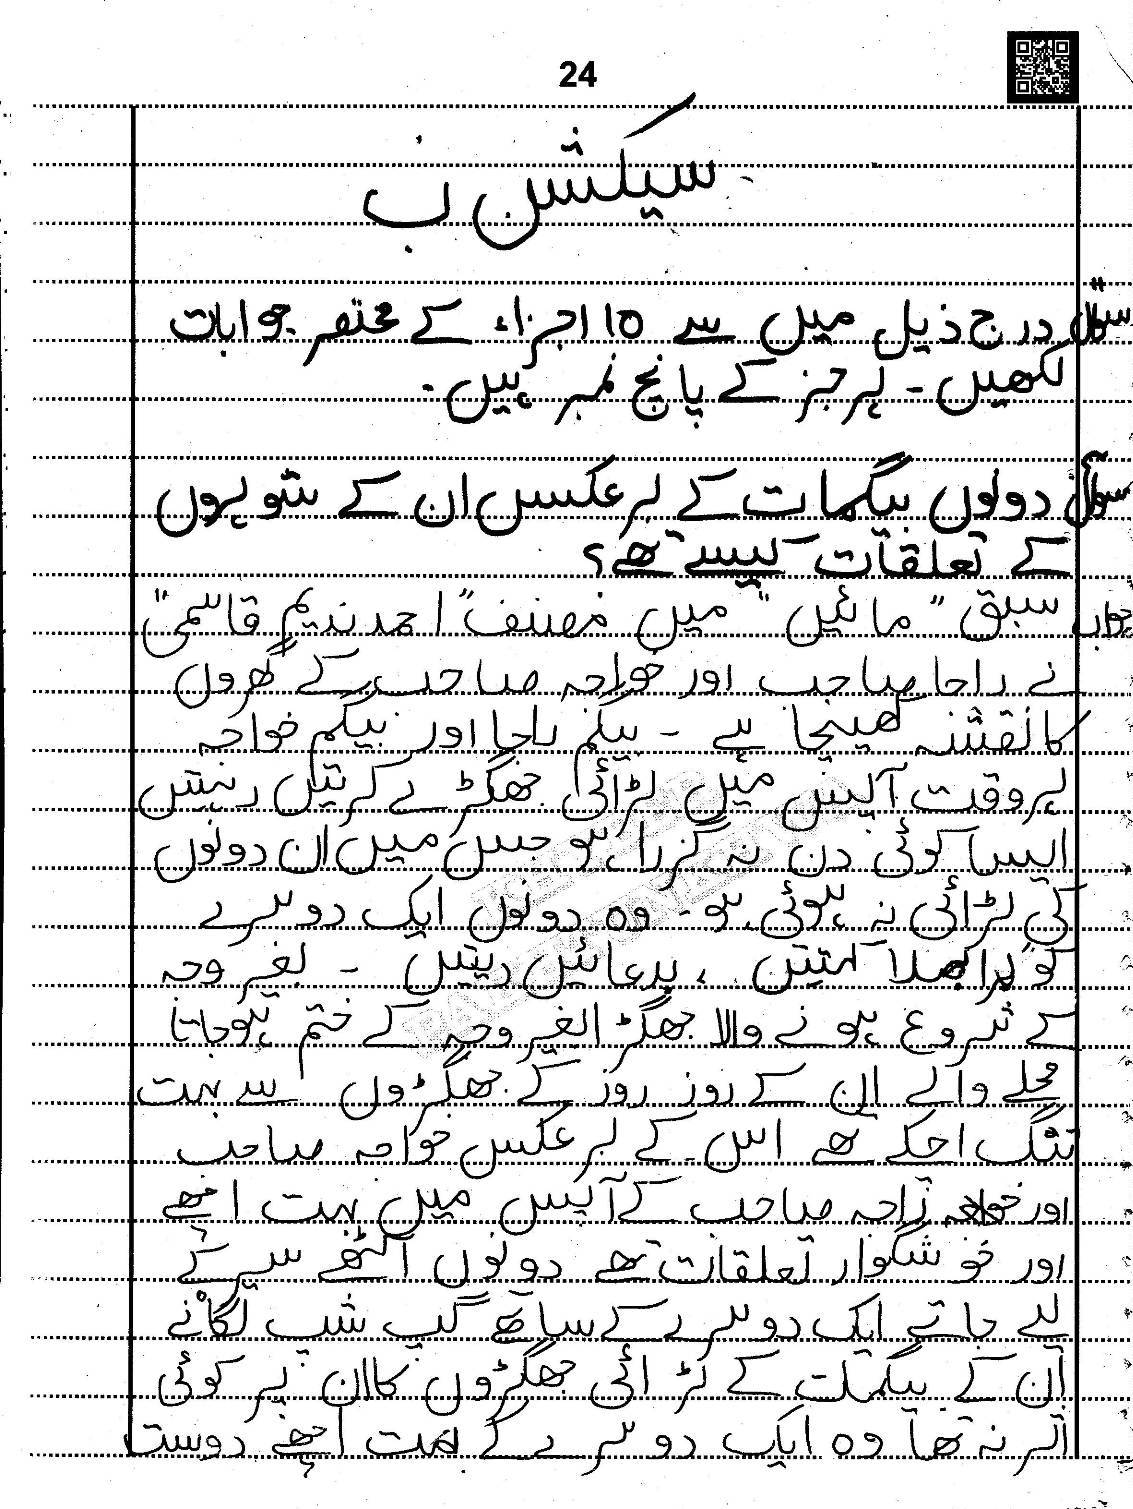 24
سیکشن ب
سوال درج ذیل میں سے 10 اجزاء کے مختصر جوابات
لکھیں۔ ہر جز کے پانچ نمبر ہیں۔
سوال دونوں بیگمات کے برعکس ان کے شوہروں
کے تعلقات کیسے تھے؟
جواب سبق "مائیں" میں مصنف "احمد ندیم قاسمی"
نے راجا صاحب اور خواجہ صاحب کے گھروں
کا نقشہ کھینچا ہے۔ بیگم راجا اور بیگم خواجہ
ہر وقت آپس میں لڑائی جھگڑے کرتیں رہتیں
ایسا کوئی دن نہ گزرا ہو جس میں ان دونوں
کی لڑائی نہ ہوئی ہو۔ وہ دونوں ایک دوسرے
کو برا بھلا کہتیں، بدعائیں دیتیں۔ بغیر وجہ
کے شروع ہونے والا جھگڑا بغیر وجہ کے ختم ہو جاتا
محلے والے ان کے روز روز کے جھگڑوں سے بہت
تنگ اچکے تھے اس کے برعکس خواجہ صاحب
اور راجہ صاحب کے آپس میں بہت اچھے
اور خوشگوار تعلقات تھے دونوں اکٹھے سیر کے
لیے جاتے ایک دوسرے کے ساتھ گپ شپ لگاتے
ان کے بیگمات کے لڑائی جھگڑوں کا ان پر کوئی
اثر نہ تھا وہ ایک دوسرے کے بہت اچھے دوست